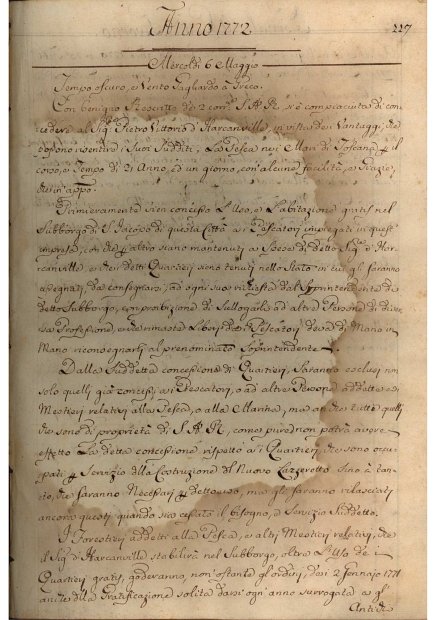 Anno 1772
227
Mercoldì 6 Maggio
Tempo oscuro, e Vento Gagliardo a Greco.
Con benigno Rescritto de' 2 corr.e S.A.R. si è compiaciuta di con-
cedere al Sig.re Pietro Vittorio d'Harcanville, in vista dei Vantaggi, che
possono risentire i Suoi Sudditi, La Pesca nei Mari di Toscana p il
corso, e Tempo di 21 Anno, ed un giorno, con alcune facilità, e Grazie,
che in app.o
Primieramente vien concesso L'Uso, e L'abitazione gratis nel
Subborgo di S. Jacopo di questa Città ai Pescatori impiegati in quest'
impresa, con che p altro siano mantenuti a Spese di detto Sig.re d'Har-
canville, e che detti Quartieri sieno tenuti nello Stato in cui gli saranno
assegnati, da consegnarsi, ad ogni sua richiesta del Soprintendente di
detto Subborgo, con proibizione di Sullogarli ad altre Persone di diver-
sa Professione, e che rimasti Liberi da Pescatori devino di Mano in
Mano riconsegnarsi al prenominato Soprintendente.
Dalla Suddetta concessione di Quartieri, saranno esclusi non
solo quelli già concessi ai Pescatori, o ad altre Persone addette ai
Mestieri relativi alla Pesca, o alla Marina, ma anche tutti quelli
che sono di proprietà di S.A.R., come pure non potrà avere
effetto La detta concessione rispetto ai Quartieri che sono occu-
pati p Servizio della Costruzione del Nuovo Lazzeretto sino a tan-
to, che saranno Necessari p detto uso, ma gli saranno rilasciati
ancora questi quando sia cessato il bisogno, e Servizio Suddetto.
I Forestieri addetti alla Pesca, e altri Mestieri relativi, che
il Sig.re d'Harcanville stabilirà nel Subborgo, oltre L'Uso de'
Quartieri gratis, goderanno, non ostante gl'ordini, dei 2 Gennaio 1771
anche della Gratificazione solita darsi ogni anno surrogata a gl'
Antichi